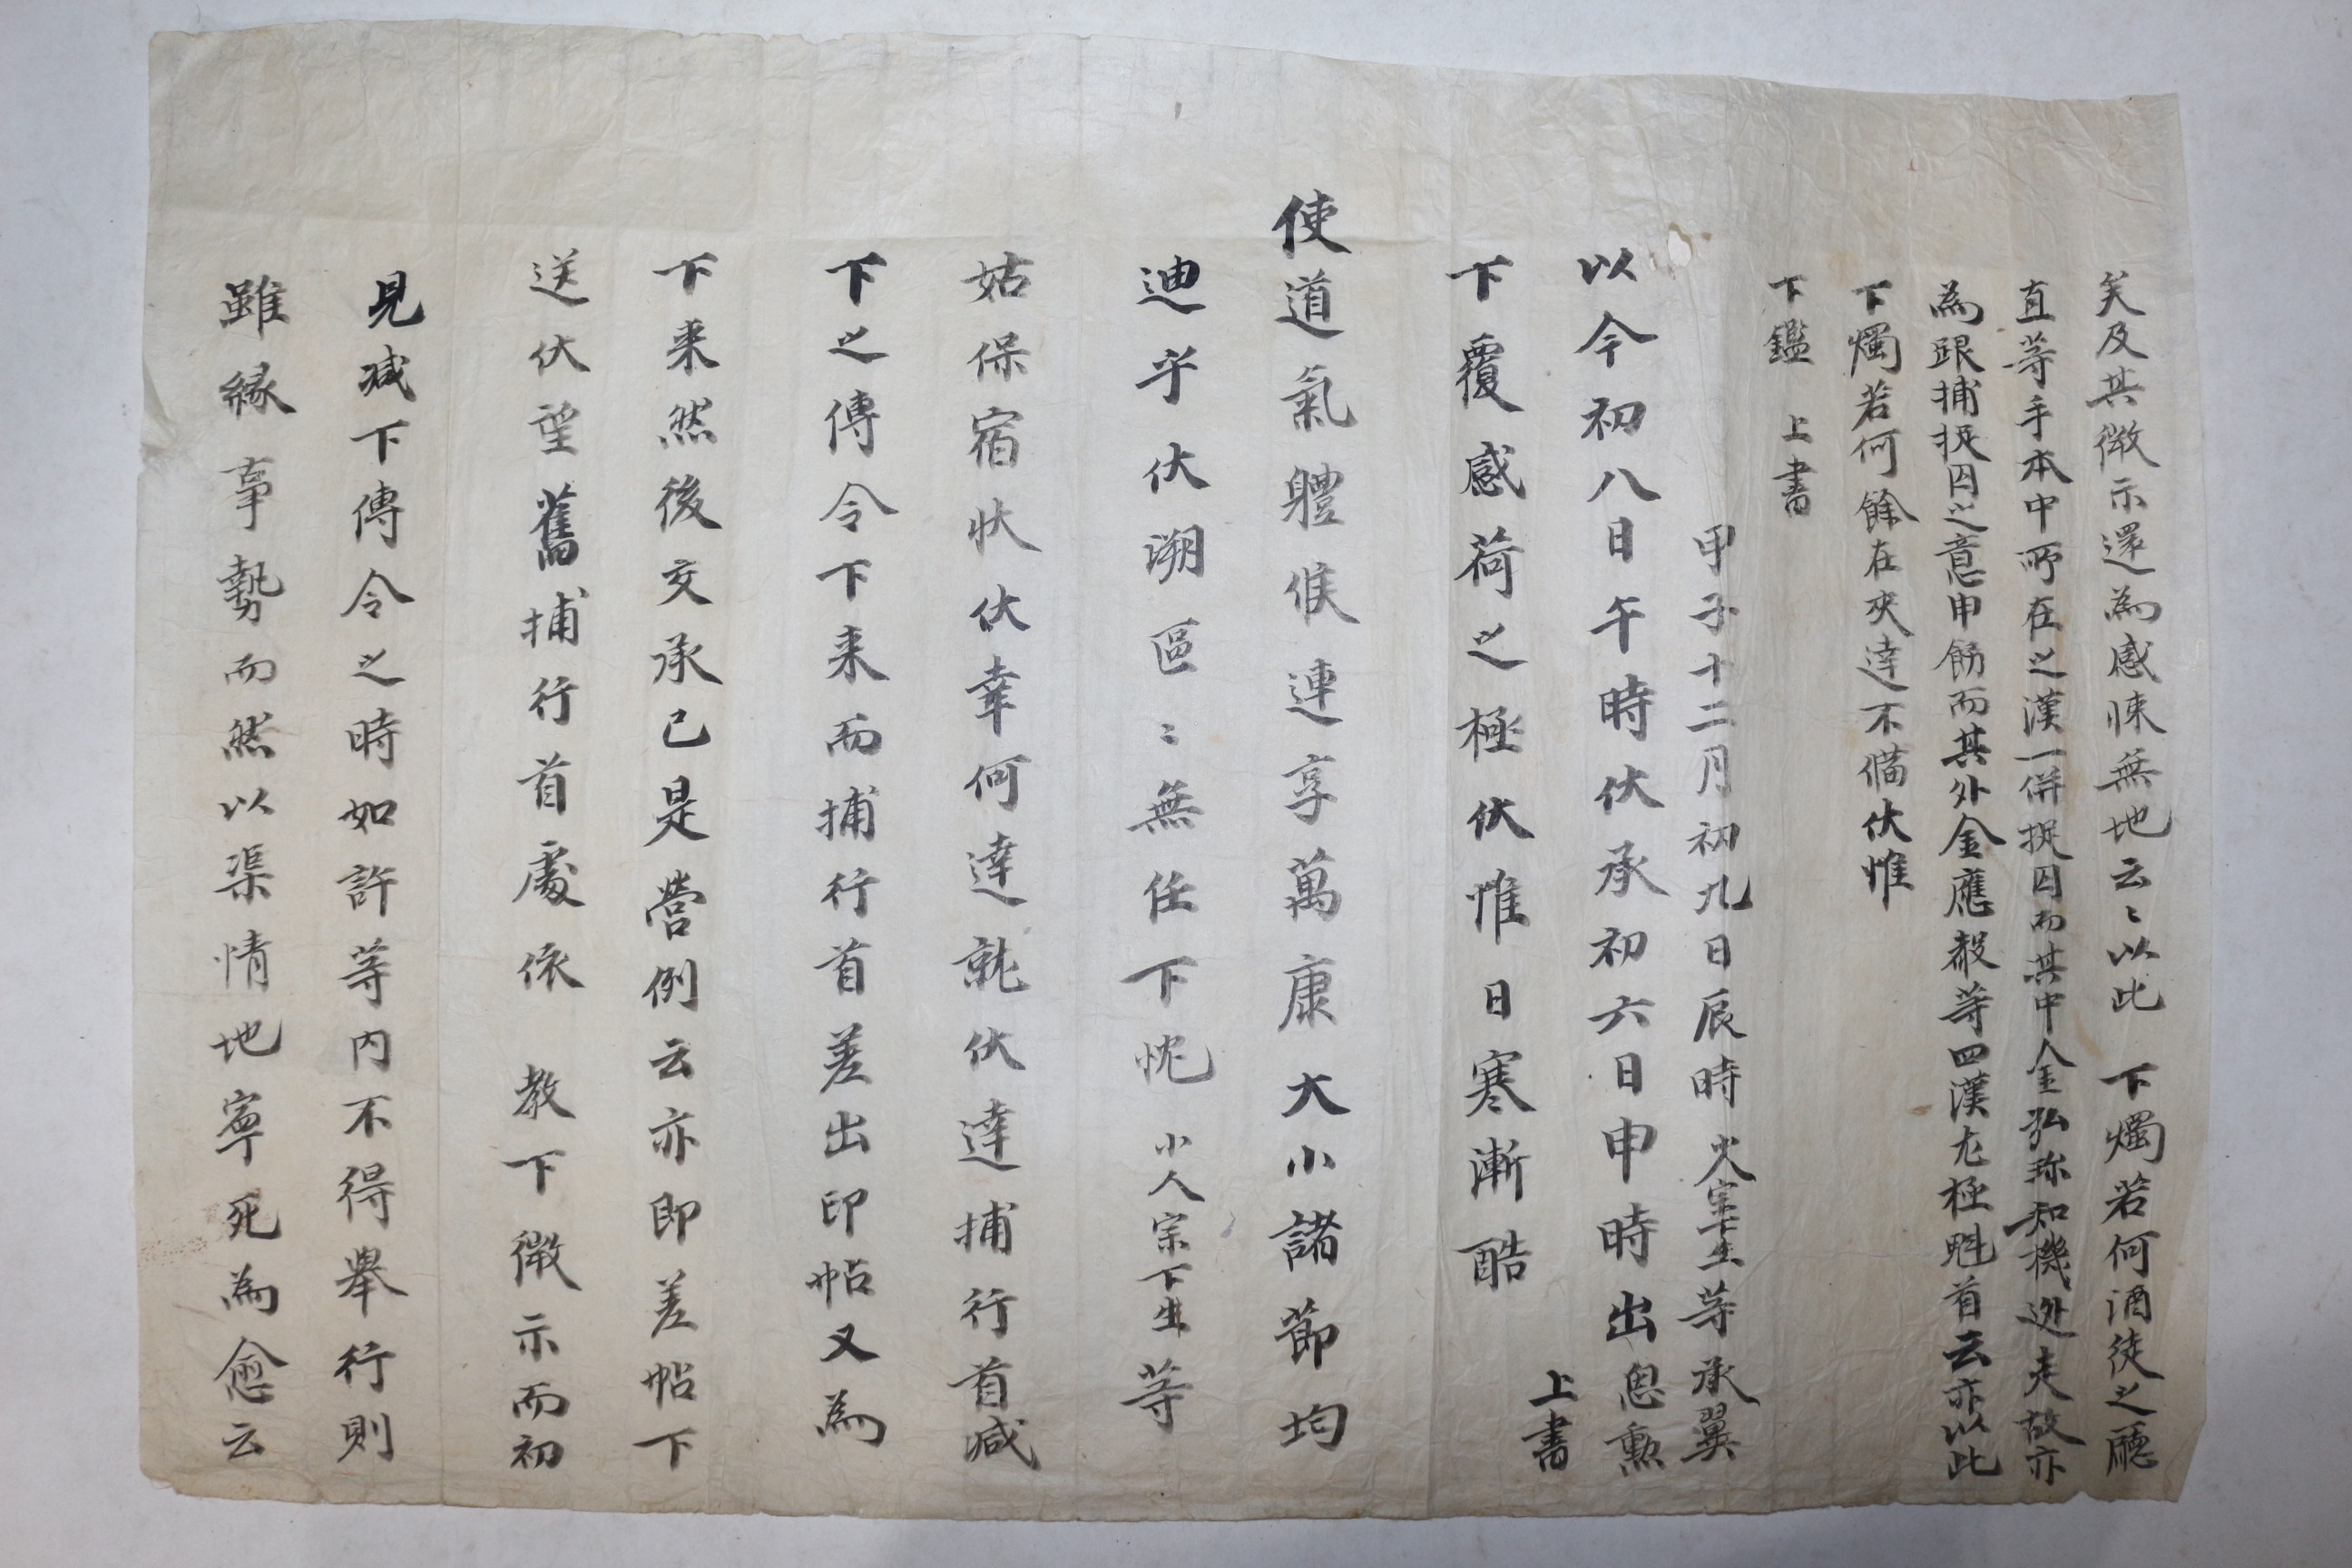 矣及其微示還為感悚無地云〻以此 下燭若何酒徒之廳
直等手本中所在之漢一併捉囚而其中金弘珎知機迯走故亦
為跟捕捉囚之意申飭而其外金應毅等四漢尤極魁首云亦以此
下燭若何餘在夾達不備伏惟
下鑑 上書
甲子十二月初九日辰時 生等承翼
以今初八日午時伏承初六日申時出恩勳
上書
下覆感荷之極伏惟日寒漸酷
使道氣體候連享萬康大小諸節均
迪乎伏溯區〻無任下忱 小人宗下生等
姑保宿狀伏幸何達就伏達捕行首减
下之傳令下来而捕行首差出印帖又為
下来然後交承已是營例云亦即差帖下
送伏望舊捕行首處依 教下微示而初
見减下傳令之時如許等內不得舉行則
雖緣事勢而然以渠情地寧死為愈云